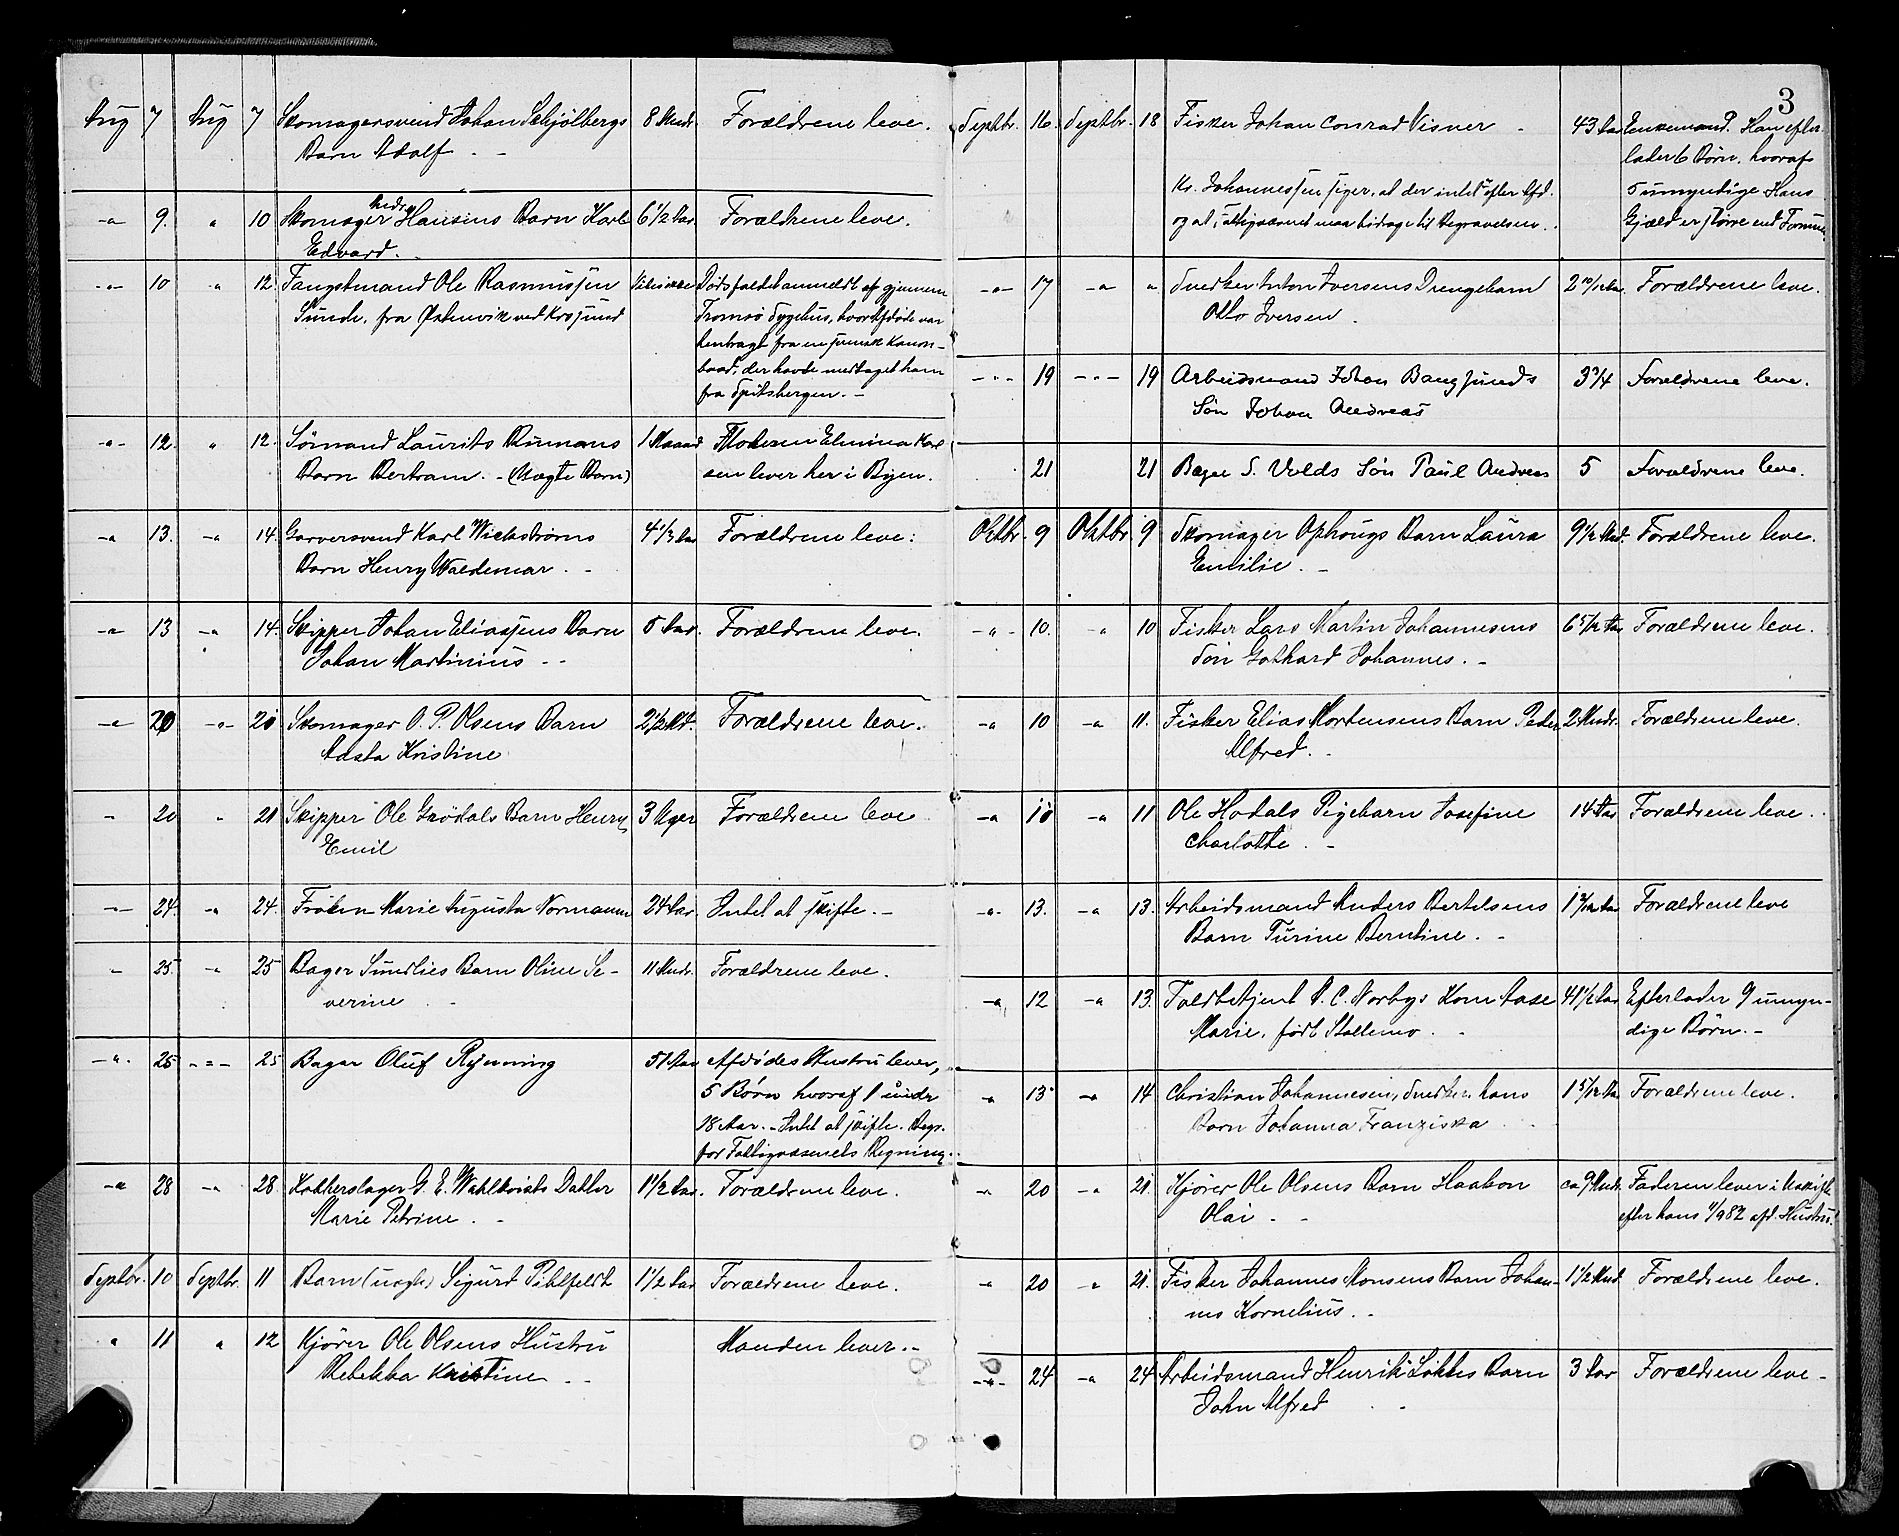 Aug 7 Aug 7 Skomagersvend Johan Schjølbergs 8 Mndr. Forældrene leve.
Barn Adolf. -
-"- 9. " 10 Skomager Andr. Hansens Barn Karl 6 1/2 Aar. Forældrene leve.
Edvard. -
-"- 10 " 12. Fangstmand Ole Rasmussen Vides ikke Dødsfaldet anmeldt af gjennem
Sunde, fra Østervik ved Tromsø Sygehus, hvor Afdøde var
henbragt fra en svensk Kanon-
baad, der havde medtaget ham
fra Spitsbergen. -
-"- 12. " 12. Sømand Laurits Rumans 1 Maaned Moderen Elmina Karl
Barn Bertram. - (Uægte Barn) sen lever her i Byen.
-" 13. -" 14. Garversvend Karl Wickstrøms 4 1/3 Aar Forældrene leve.
Barn Henry Waldemar. -
-" 13 -" 14. Skipper Johan Eliassens Barn 5 Aar. Forældrene leve.
Johan Martinius - -
-" 20 -"- 20 Skomager O. P. Olsens Barn 2 1/2 Md. Forældrene leve.
Adsta Kristine
" 20 " 21 Skipper Ole Grødals Barn Henry 3 Uger Forældrene leve
Emil
-"- 24. -" 24. Frøken Marie Augusta Normann 24 Aar. Intet at skifte. -
" 25. -" 25 Bager Sundlies Barn Oline Se- 11 Mndr. Forældrene leve.
verine -
-"- 25 -"- 25 Bager Oluf Rynning 51 Aar Afdødes Hustru lever,
5 Børn hvoraf 1 under
18 Aar. - Intet at skifte. Begr.
for Fattigvæsenets Regning.
-" 28 -" 28. Kobberslager G. E. Wahlkvists Datter 1 1/2 Aar. Forældrene leve.
Marie Petrine. -
Septbr. 10 Septbr. 11 Barn (uægte) Sigurd Pihlfeldt 1 1/2 Aar Forældrene leve.
" 11 " 12 Kjører Ole Olsens Hustru Manden lever. -
Rebekka Kristine - -
3
Septbr. 16. Septbr. 18 Fisker Johan Conrad Visner - 43 Aar Enkemand. Han efter-
lader 6 Børn, hvoraf
Kr. Johannessen siger, at der intet efter Afd. 5 umyndige. Hans
og at Fattigvæsenet maa bidrage til Begravelsen. Gjæld er større end Formuen
-"- 17 -" " Snedker Anton Iversens Drengebarn 2 10/12 Aar. Forældrene leve.
Otto Iversen.
-"- 19 -"- 19 Arbeidsmand Johan Bangsunds 3 3/4 Forældrene leve.
Søn Johan Andreas
21 21 Bager S. Volds Søn Paul Andreas 5 Forældrene leve.
Oktbr. 9 Oktbr 9 Skomager Ophaugs Barn Laura 9 1/2 Mnd. Forældrene leve.
Emilie. -
-"- 10. -" 10 Fisker Lars Martin Johannesens 6 5/12 Aar Forældrene leve.
Søn Gothard Johannes. -
-" 10 -" 11. Fisker Elias Mortensens Barn Peder 2 Mndr. Forældrene leve.
Alfred. -
-" 10 -" 11 Ole Hodals Pigebarn Josefine 14 Aar Forældrene leve.
Charlotte. -
-"- 13. -" 13. Arbeidsmand Anders Bertelsens Forældrene leve
Barn Turine Berntine. -
-" 12 -" 13. Toldbetjent A. C. Norbys Kone Aase 41 1/2 Aar Efterlader 9 umyn-
Marie, født Stallemo. - dige Børn. -
-" 13 -" 14 Christian Johannesen, Snedker, hans 1 5/12 Aar Forældrene leve.
Barn Johanna Franziska
-" 20 -" 21. Kjører Ole Olsens Barn Haakon ca 9 Mndr. Faderen lever i
Olai - - efter hans 11/9 82 afd. Hustru.
" 20 " 21. Fisker Johannes Monsens Barn Johan- 1 1/2 Mnd. Forældrene leve.
nes Kornelius. -
-"- 24 -" 24 Arbeidsmand Henrik Løkkes Barn 3 Aar Forældrene leve -
John Alfred -